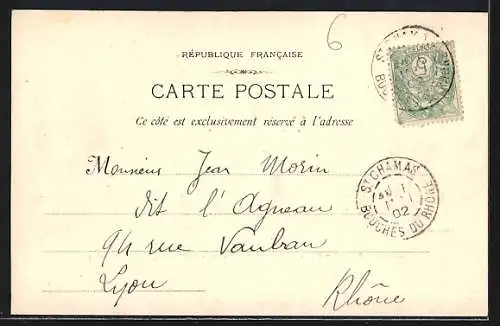 6
RÉPUBLIQUE FRANÇAISE
CARTE POSTALE
Ce côté est exclusivement réservé à l'adresse
Monsieur Jean Morin
dit l'Agneau
94 rue Vauban
Lyon
Rhône
ST CHAMAS
02
BOUCHES DU RHÔNE
ST CHAMA